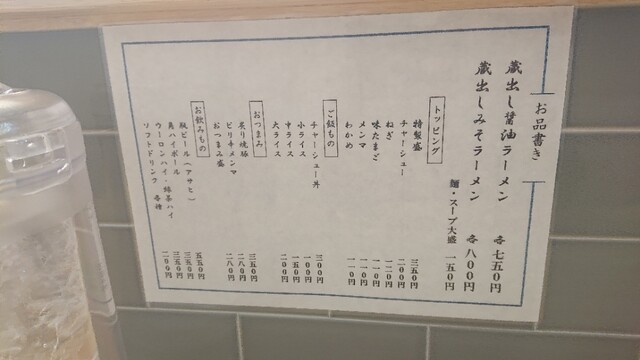 お品書き
蔵出し醤油ラーメン 各七五〇円
蔵出しみそラーメン 各八〇〇円
麺・スープ大盛 一五〇円
トッピング
特製盛 三五〇円
チャーシュー 二〇〇円
ねぎ 一二〇円
味たまご 一一〇円
メンマ 一一〇円
わかめ 一一〇円
ご飯もの
チャーシュー丼 三〇〇円
小ライス 一〇〇円
中ライス 一五〇円
大ライス 二〇〇円
おつまみ
炙り焼豚 三五〇円
ピリ辛メンマ 二八〇円
おつまみ盛 二八〇円
お飲みもの
瓶ビール（アサヒ） 五五〇円
角ハイボール 三五〇円
ウーロンハイ・緑茶ハイ 三五〇円
ソフトドリンク 各種 二〇〇円